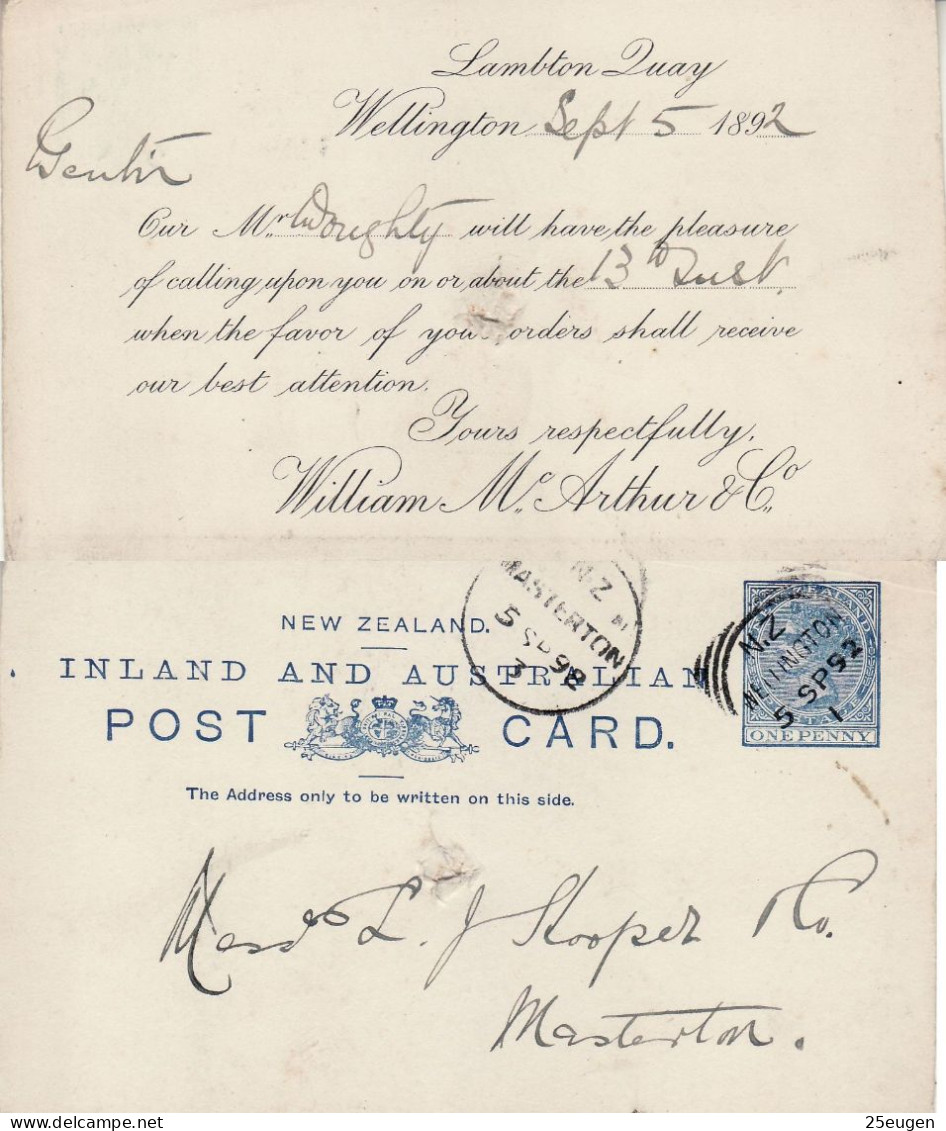 Lambton Quay
Wellington Sept 5 1892
Gentn
Our Mr Doughty will have the pleasure
of calling upon you on or about the 13th Inst.
when the favor of your orders shall receive
our best attention.
Yours respectfully,
William McArthur & Co.
NEW ZEALAND.
INLAND AND AUSTRALIAN
POST CARD.
The Address only to be written on this side.
NZ
MASTERTON
5 SP 92
3
NZ
WELLINGTON
5 SP 92
1
ONE PENNY
Messrs L. J Hooper & Co.
Masterton.
25eugen